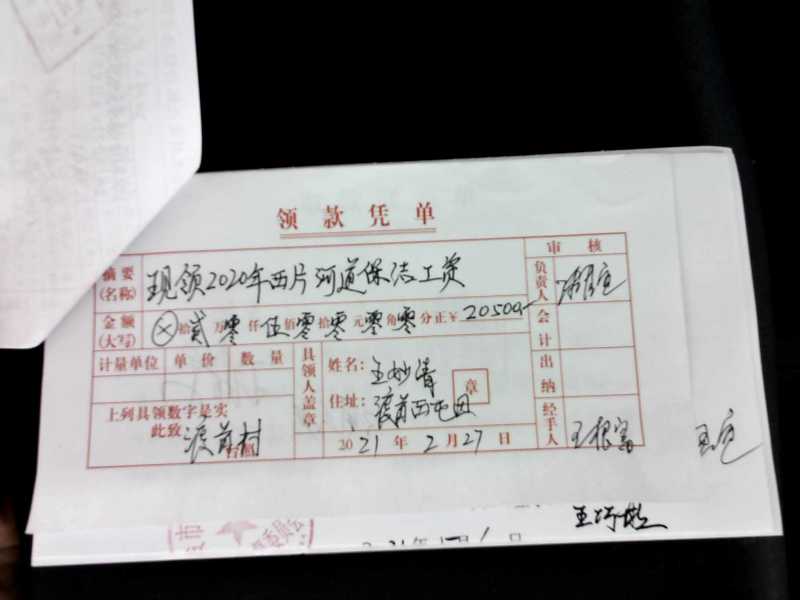 领款凭单
审核
摘要(名称) 现领2020年西片河道保洁工资
负责人
金额(大写) ⊗拾贰万零仟伍佰零拾零元零角零分正¥20500.-
会计
计量单位 单价 数量
具领人盖章
姓名: 王妙清
章
出纳
住址: 渡首西屯田
上列具领数字是实
此致 渡首村
台照
2021年2月27日
经手人 王根富